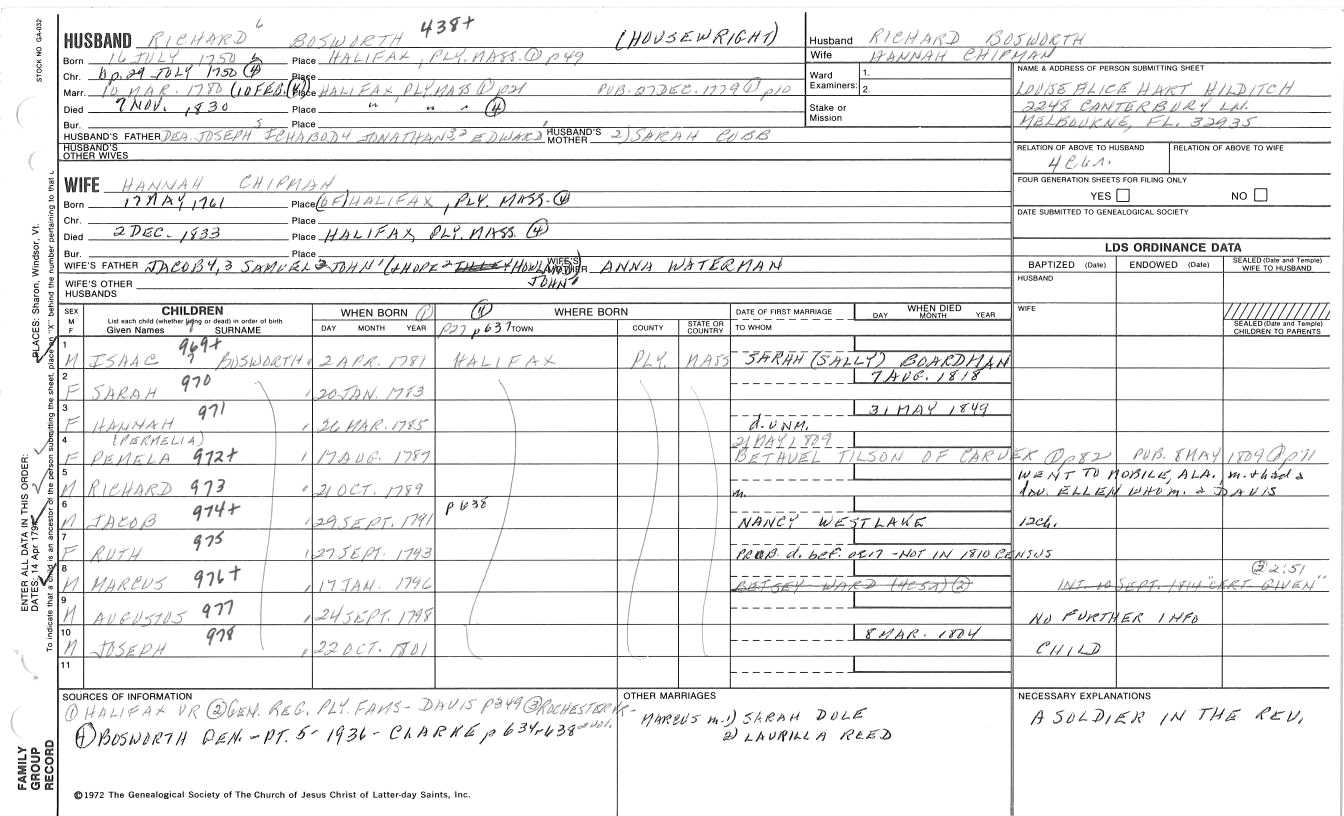 STOCK NO GA-032
HUSBAND RICHARD 6 BOSWORTH 438+ (HOUSEWRIGHT)
Born 16 JULY 1750 Place HALIFAX, PLY. MASS. ① p49
Chr. bp. 29 JULY 1750 ④ Place
Marr. 10 MAR. 1780 (10 FEB. ④) Place HALIFAX, PLY. MASS ① p21 PUB. 27 DEC. 1779 ① p10
Died 7 NOV. 1830 Place " " " ④
Bur. Place
HUSBAND'S FATHER DEA. JOSEPH 5 ICHABOD 4 JONATHAN 3 2 EDWARD 1 HUSBAND'S MOTHER 2) SARAH COBB
HUSBAND'S OTHER WIVES
Husband RICHARD BOSWORTH
Wife HANNAH CHIPMAN
Ward Examiners: 1. 2.
Stake or Mission
NAME & ADDRESS OF PERSON SUBMITTING SHEET
LOUISE ALICE HART HILDITCH
2248 CANTERBURY LN.
MELBOURNE, FL. 32935
RELATION OF ABOVE TO HUSBAND RELATION OF ABOVE TO WIFE
FOUR GENERATION SHEETS FOR FILING ONLY
YES NO
DATE SUBMITTED TO GENEALOGICAL SOCIETY
WIFE HANNAH CHIPMAN
Born 17 MAY 1761 Place (OF) HALIFAX, PLY. MASS. ④
Chr. Place
Died 2 DEC. 1833 Place HALIFAX, PLY. MASS. ④
Bur. Place
WIFE'S FATHER JACOB 4, 3 SAMUEL 2 JOHN 1 (& HOPE 2 TILLEY HOWLAND JOHN 1) WIFE'S MOTHER ANNA WATERMAN
WIFE'S OTHER HUSBANDS
LDS ORDINANCE DATA
BAPTIZED (Date) ENDOWED (Date) SEALED (Date and Temple) WIFE TO HUSBAND
HUSBAND
WIFE
SEALED (Date and Temple) CHILDREN TO PARENTS
SEX M F
CHILDREN
List each child (whether living or dead) in order of birth
Given Names SURNAME
WHEN BORN ①
DAY MONTH YEAR
④ WHERE BORN
P27 p 637 TOWN COUNTY STATE OR COUNTRY
DATE OF FIRST MARRIAGE
TO WHOM
WHEN DIED
DAY MONTH YEAR
1 M ISAAC 7 969+ BOSWORTH 2 APR. 1781 HALIFAX PLY. MASS SARAH (SALLY) BOARDMAN
2 F SARAH 970 20 JAN. 1783 7 AUG. 1818
3 F HANNAH 971 26 MAR. 1785 31 MAY 1849 d. UNM.
4 F (PERMELIA) PEMELA 972+ 17 AUG. 1787 21 MAY 1809 BETHUEL TILSON OF CARVER ① p82 PUB. 8 MAY 1809 ① p71
5 M RICHARD 973 21 OCT. 1789 m. WENT TO MOBILE, ALA., m. & had a dau. ELLEN WHO m. a DAVIS
6 M JACOB 974+ 29 SEPT. 1791 p 638 NANCY WESTLAKE 12 ch.
7 F RUTH 975 27 SEPT. 1793 PROB. d. bef. 1817 - NOT IN 1810 CENSUS
8 M MARCUS 976+ 17 JAN. 1796 BETSEY WARD ② ② 2:51 INT. 10 SEPT. 1814 "CERT GIVEN"
9 M AUGUSTUS 977 24 SEPT. 1798 NO FURTHER INFO
10 M JOSEPH 978 22 OCT. 1801 8 MAR. 1804 CHILD
11
SOURCES OF INFORMATION
① HALIFAX VR ② GEN. REG. PLY. FAMS - DAVIS p349 ③ ROCHESTER VR -
④ BOSWORTH GEN. - PT. 5 - 1936 - CLARKE p 634-638
OTHER MARRIAGES
MARCUS m. 1) SARAH DOLE
2) LAURILLA REED
NECESSARY EXPLANATIONS
A SOLDIER IN THE REV.
©1972 The Genealogical Society of The Church of Jesus Christ of Latter-day Saints, Inc.
FAMILY GROUP RECORD
ENTER ALL DATA IN THIS ORDER:
DATES: 14 Apr 179
PLACES: Sharon, Windsor, Vt.
To indicate that a child is an ancestor of the person submitting the sheet, place an "X" behind the number pertaining to that c